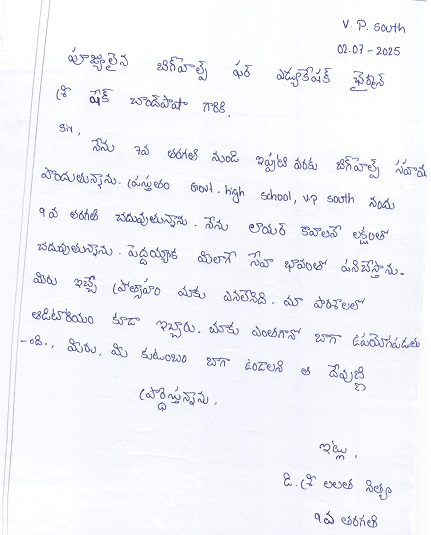 V. P. South
02-07-2025
పూజ్యులైన బిగ్‌హెల్ప్ ఫర్ ఎడ్యుకేషన్ ఛైర్మన్
శ్రీ షేక్ చాంద్‌పాషా గారికి,
Sir,
నేను 7వ తరగతి నుండి ఇప్పటి వరకు బిగ్‌హెల్ప్ సహాయం
పొందుతున్నాను. ప్రస్తుతం Govt. high school, V.P South నందు
9వ తరగతి చదువుతున్నాను. నేను లాయర్ కావాలనే లక్ష్యంతో
చదువుతున్నాను. పెద్దయ్యాక మీలాగే సేవా భావంతో పనిచేస్తాను.
మీరు ఇచ్చే ప్రోత్సాహం మాకు ఎనలేనిది. మా పాఠశాలలో
ఆడిటోరియం కూడా ఇచ్చారు. మాకు ఎంతగానో బాగా ఉపయోగపడుతు
-ంది., మీరు, మీ కుటుంబం బాగా ఉండాలని ఆ దేవుణ్ణి
ప్రార్థిస్తున్నాను.
ఇట్లు,
డి. శ్రీ లలిత నిత్య
9వ తరగతి